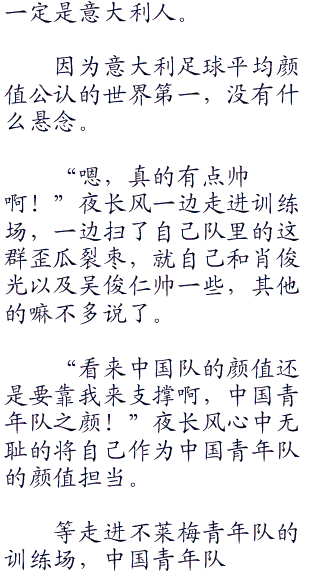 一定是意大利人。
因为意大利足球平均颜
值公认的世界第一，没有什
么悬念。
“嗯，真的有点帅
啊！”夜长风一边走进训练
场，一边扫了自己队里的这
群歪瓜裂枣，就自己和肖俊
光以及吴俊仁帅一些，其他
的嘛不多说了。
“看来中国队的颜值还
是要靠我来支撑啊，中国青
年队之颜！”夜长风心中无
耻的将自己作为中国青年队
的颜值担当。
等走进不莱梅青年队的
训练场，中国青年队